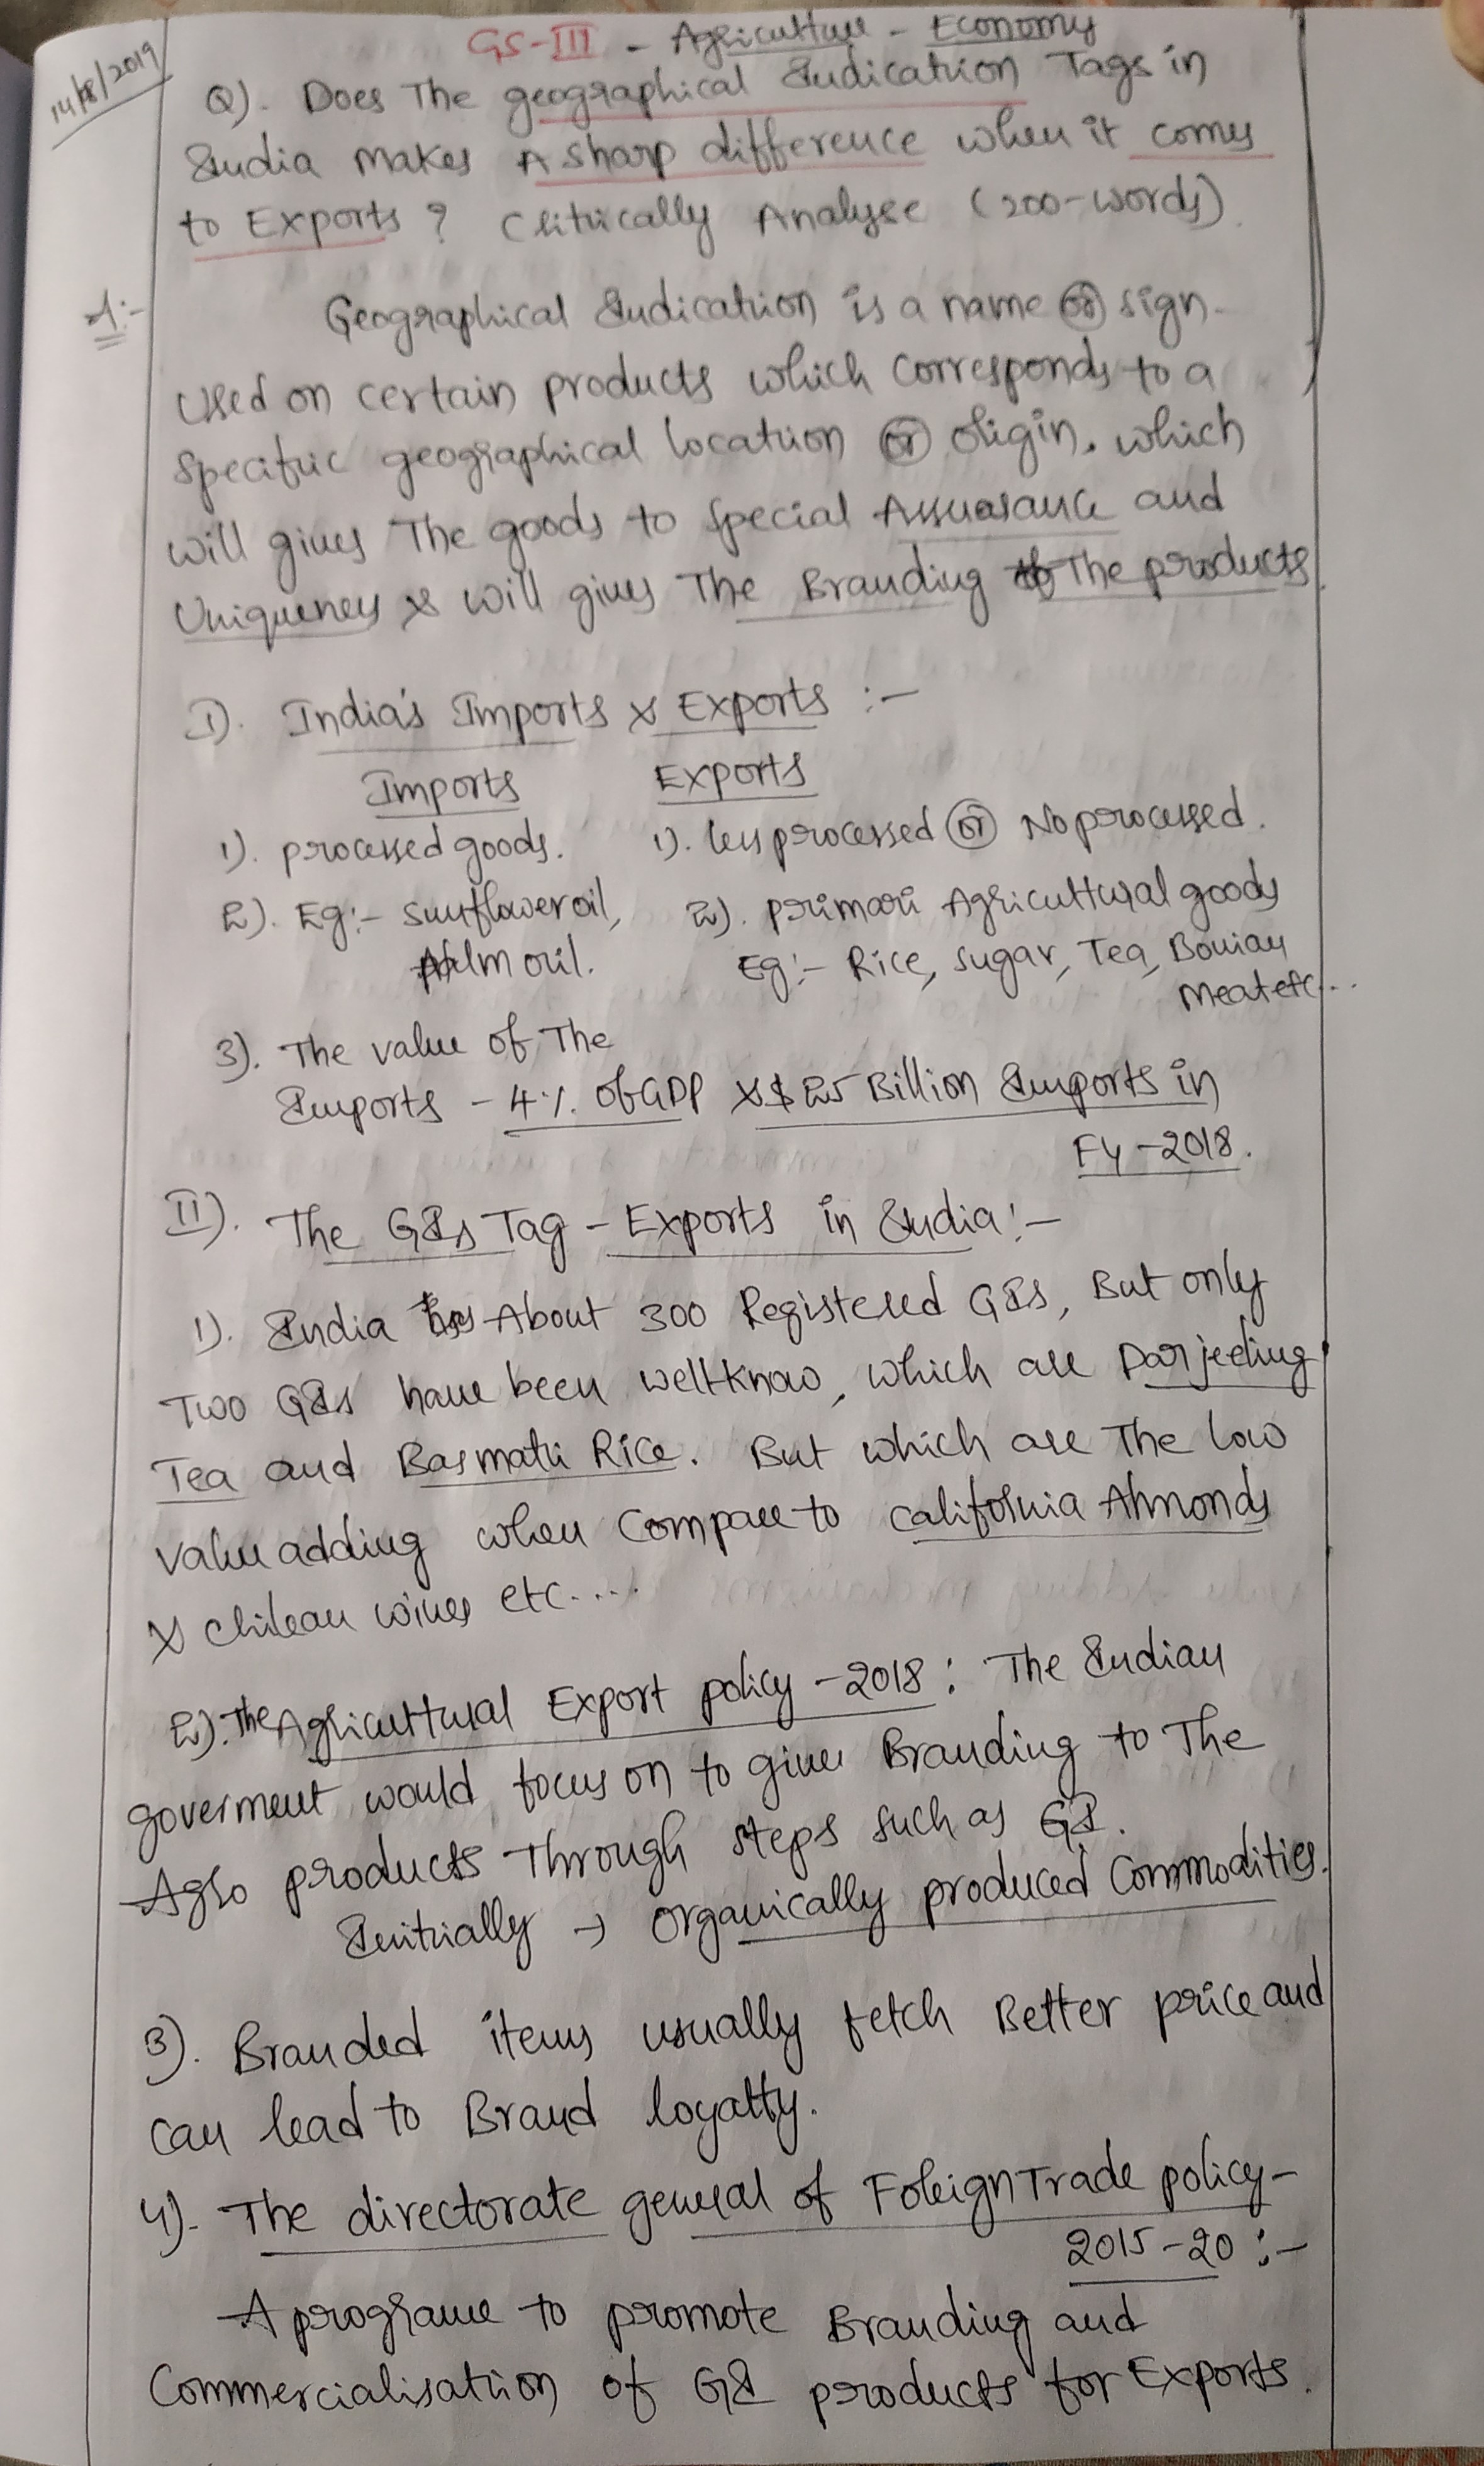 14/8/2019
GS-III - Agriculture - Economy
Q). Does The geographical Indication Tags in
India makes A sharp difference when it comes
to Exports ? Critically Analyse (200-words).
A:-
Geographical Indication is a name (or) sign
Used on certain products which corresponds to a
specific geographical location (or) origin. which
will gives The goods to special Assurance and
Uniqueness & will gives The Branding of The products.
I). India's Imports & Exports :-
Imports Exports
1). processed goods. 1). less processed (or) No processed.
2). Eg:- sunflower oil, 2). primari Agricultural goods
Palm oil. Eg:- Rice, sugar, Tea, Bovian
Meat etc...
3). The value of The
Imports - 4% of GDP & $25 Billion Imports in
FY-2018.
II). The GIs Tag - Exports in India:-
1). India has About 300 Registered GIs, But only
Two GIs have been well know, which are Darjeeling
Tea and Basmati Rice. But which are The low
value adding when Compare to California Almonds
& chilean wines etc....
2). The Agricultural Export policy - 2018 : The Indian
goverment would focus on to give Branding to The
Agro products Through steps such as GI.
Initially → organically produced Commodities.
3). Branded items usually fetch Better price and
can lead to Brand loyalty.
4). The directorate general of Foreign Trade policy-
2015-20 :-
A programe to promote Branding and
Commercialisation of GI products for Exports.